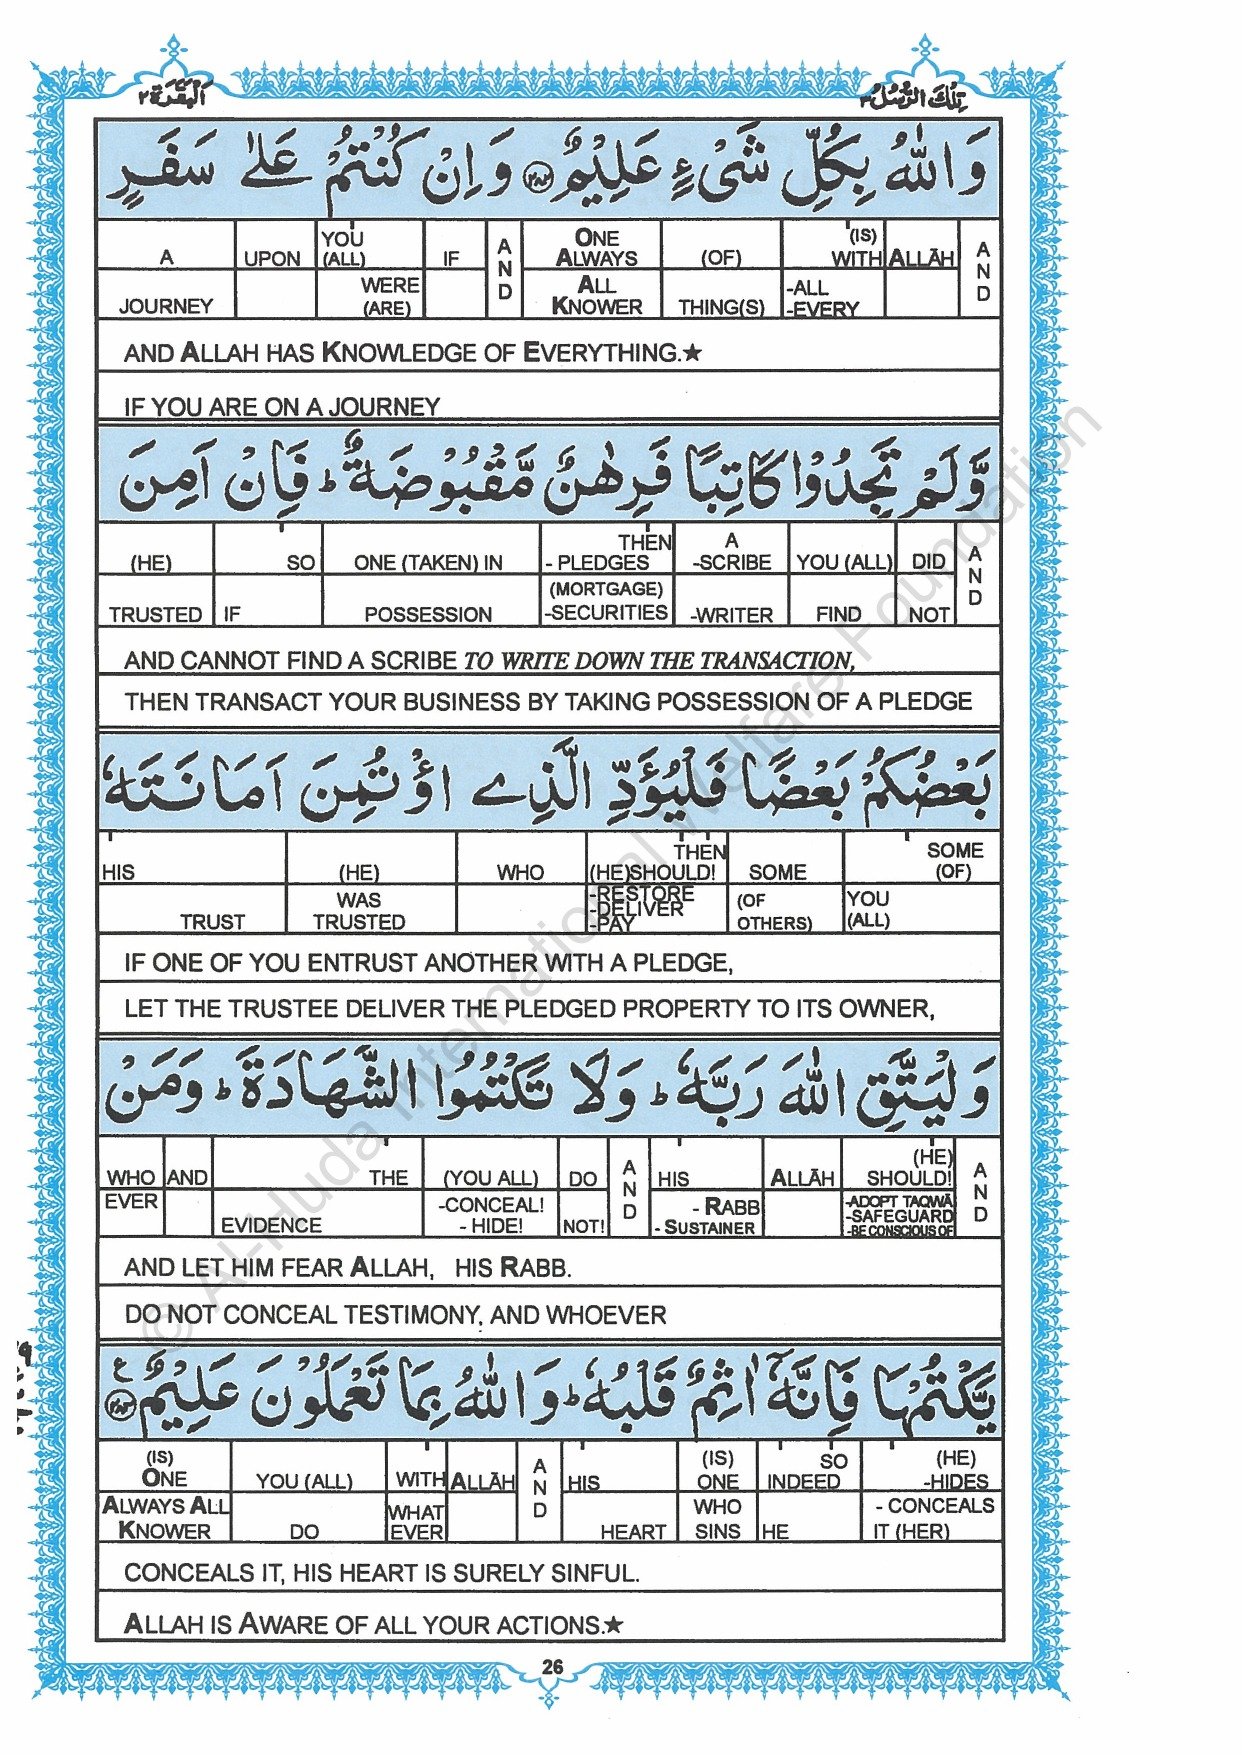 الْبَقَرَة ٢
تِلْكَ الرُّسُلُ ٣
وَاللّٰهُ بِكُلِّ شَىْءٍ عَلِيْمٌ ﴿٢٨٢﴾ وَاِنْ كُنْتُمْ عَلٰى سَفَرٍ
A UPON YOU (ALL) IF AND ONE ALWAYS (OF) (IS) WITH ALLĀH AND
JOURNEY WERE (ARE) ALL KNOWER THING(S) -ALL -EVERY
AND ALLAH HAS KNOWLEDGE OF EVERYTHING.★
IF YOU ARE ON A JOURNEY
وَّلَمْ تَجِدُوْا كَاتِبًا فَرِهٰنٌ مَّقْبُوْضَةٌ ؕ فَاِنْ اَمِنَ
(HE) SO ONE (TAKEN) IN THEN - PLEDGES A -SCRIBE YOU (ALL) DID AND
TRUSTED IF POSSESSION (MORTGAGE) -SECURITIES -WRITER FIND NOT
AND CANNOT FIND A SCRIBE TO WRITE DOWN THE TRANSACTION,
THEN TRANSACT YOUR BUSINESS BY TAKING POSSESSION OF A PLEDGE
بَعْضُكُمْ بَعْضًا فَلْيُؤَدِّ الَّذِى اؤْتُمِنَ اَمَانَتَهٗ
HIS (HE) WHO THEN (HE)SHOULD! SOME SOME (OF)
TRUST WAS TRUSTED -RESTORE -DELIVER -PAY (OF OTHERS) YOU (ALL)
IF ONE OF YOU ENTRUST ANOTHER WITH A PLEDGE,
LET THE TRUSTEE DELIVER THE PLEDGED PROPERTY TO ITS OWNER,
وَلْيَتَّقِ اللّٰهَ رَبَّهٗ ؕ وَلَا تَكْتُمُوا الشَّهَادَةَ ؕ وَمَنْ
WHO AND THE (YOU ALL) DO AND HIS ALLĀH (HE) SHOULD! AND
EVER EVIDENCE -CONCEAL! - HIDE! NOT! - RABB - SUSTAINER -ADOPT TAQWĀ -SAFEGUARD -BE CONSCIOUS OF
AND LET HIM FEAR ALLAH, HIS RABB.
DO NOT CONCEAL TESTIMONY, AND WHOEVER
يَّكْتُمْهَا فَاِنَّهٗٓ اٰثِمٌ قَلْبُهٗ ؕ وَاللّٰهُ بِمَا تَعْمَلُوْنَ عَلِيْمٌ ﴿٢٨٣﴾ ع
(IS) ONE YOU (ALL) WITH ALLĀH AND HIS (IS) ONE SO INDEED (HE) -HIDES
ALWAYS ALL KNOWER DO WHAT EVER HEART WHO SINS HE - CONCEALS IT (HER)
CONCEALS IT, HIS HEART IS SURELY SINFUL.
ALLAH IS AWARE OF ALL YOUR ACTIONS.★
26
© Al-Huda International Welfare Foundation